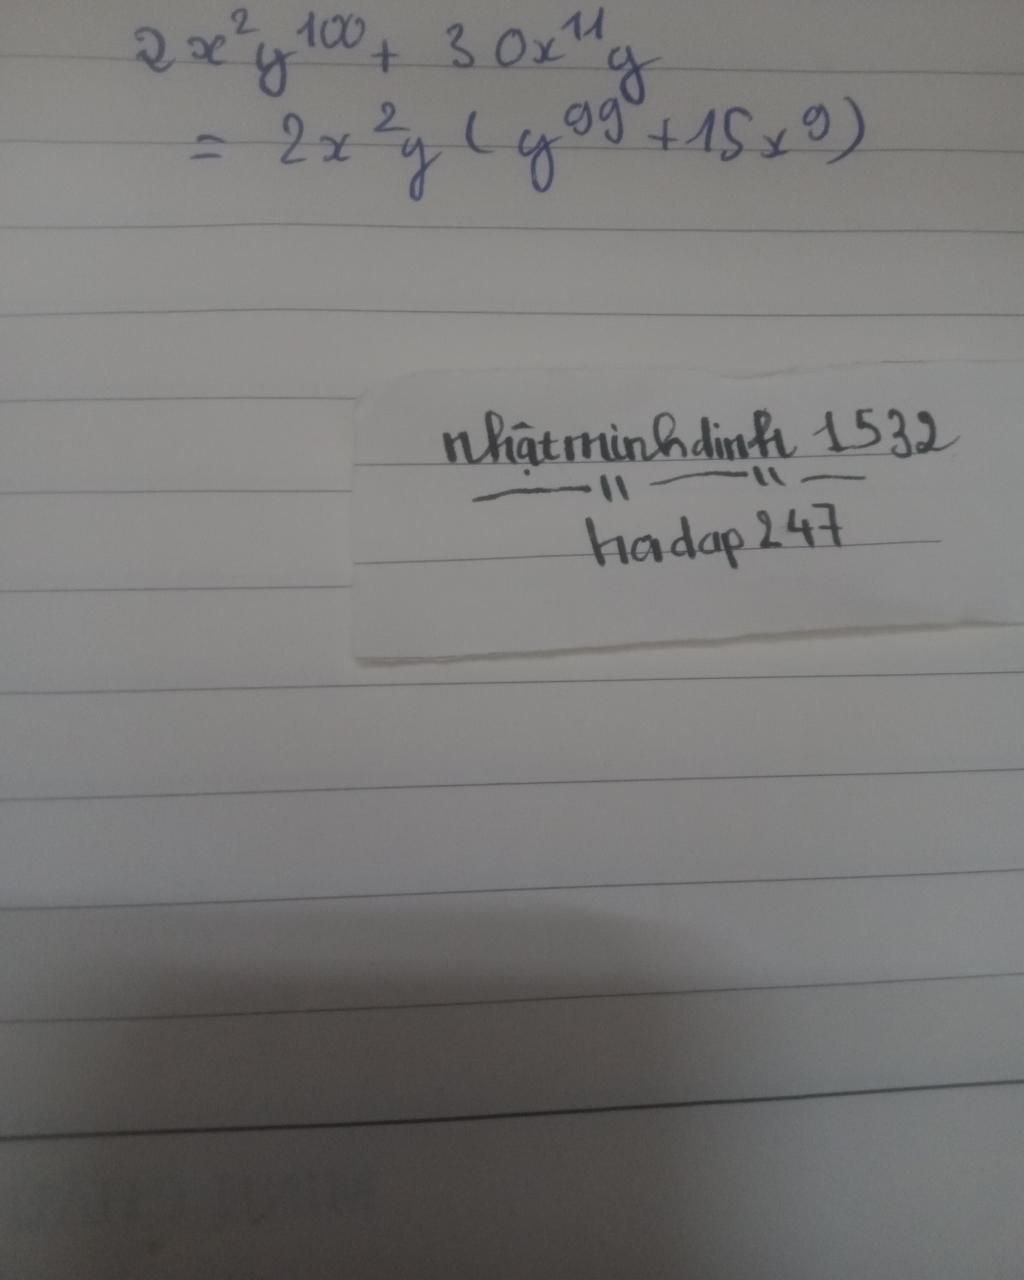 2x²y¹⁰⁰ + 30x¹¹y
= 2x²y (y⁹⁹ + 15x⁹)
nhậtminhdinh 1532
hadap247